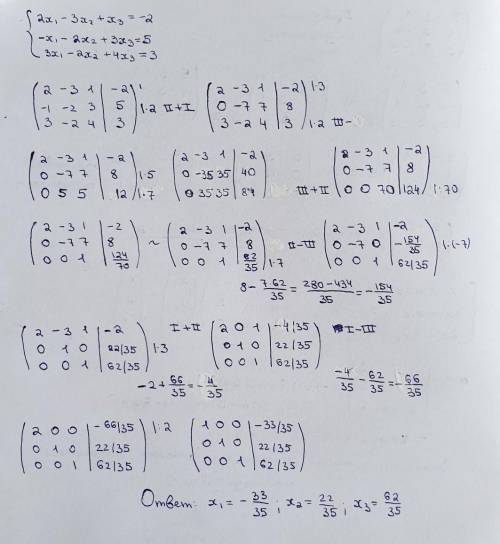 2x₁ - 3x₂ + x₃ = -2
-x₁ - 2x₂ + 3x₃ = 5
3x₁ - 2x₂ + 4x₃ = 3
2 -3 1 | -2
-1 -2 3 | 5 |·2 II+I
3 -2 4 | 3
2 -3 1 | -2 |·3
0 -7 7 | 8
3 -2 4 | 3 |·2 III-
2 -3 1 | -2
0 -7 7 | 8 |·5
0 5 5 | 12 |·7
2 -3 1 | -2
0 -35 35 | 40
0 35 35 | 84 III+II
2 -3 1 | -2
0 -7 7 | 8
0 0 70 | 124 |:70
2 -3 1 | -2
0 -7 7 | 8 ~
0 0 1 | 124/70
2 -3 1 | -2
0 -7 7 | 8 II-III
0 0 1 | 62/35 |·7
2 -3 1 | -2
0 -7 0 | -154/35 |:(-7)
0 0 1 | 62/35
8 - 7·62/35 = 280-434/35 = -154/35
2 -3 1 | -2
0 1 0 | 22/35 |·3
0 0 1 | 62/35
I+II
2 0 1 | -4/35 I-III
0 1 0 | 22/35
0 0 1 | 62/35
-2 + 66/35 = -4/35
-4/35 - 62/35 = -66/35
2 0 0 | -66/35 |:2
0 1 0 | 22/35
0 0 1 | 62/35
1 0 0 | -33/35
0 1 0 | 22/35
0 0 1 | 62/35
Ответ: x₁ = -33/35; x₂ = 22/35; x₃ = 62/35